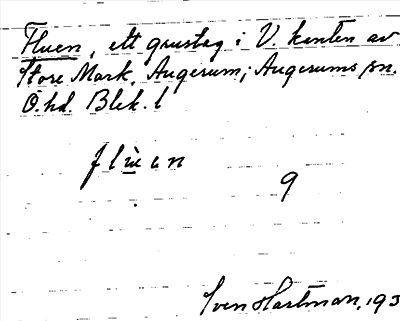 Fluen, ett grustag i V. kanten av
Store Mark, Augerum; Augerums sn.
Ö. hd. Blek. l
flu̲en
9
Sven Hartman, 193